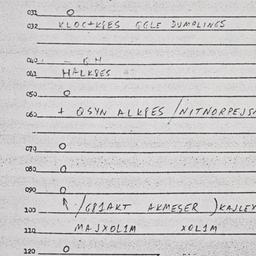 031 O
032 KLOC+KSES GGLE DUMPLINGS
040 - GH
041 HALKSES
050 O
060 + QSYN ALKSES /NITNORPEJS
070 O
080 O
090 O
100 /G81AKT AKMESER )KAJLEX
110 MAJXOL1M XOL1M
120 O